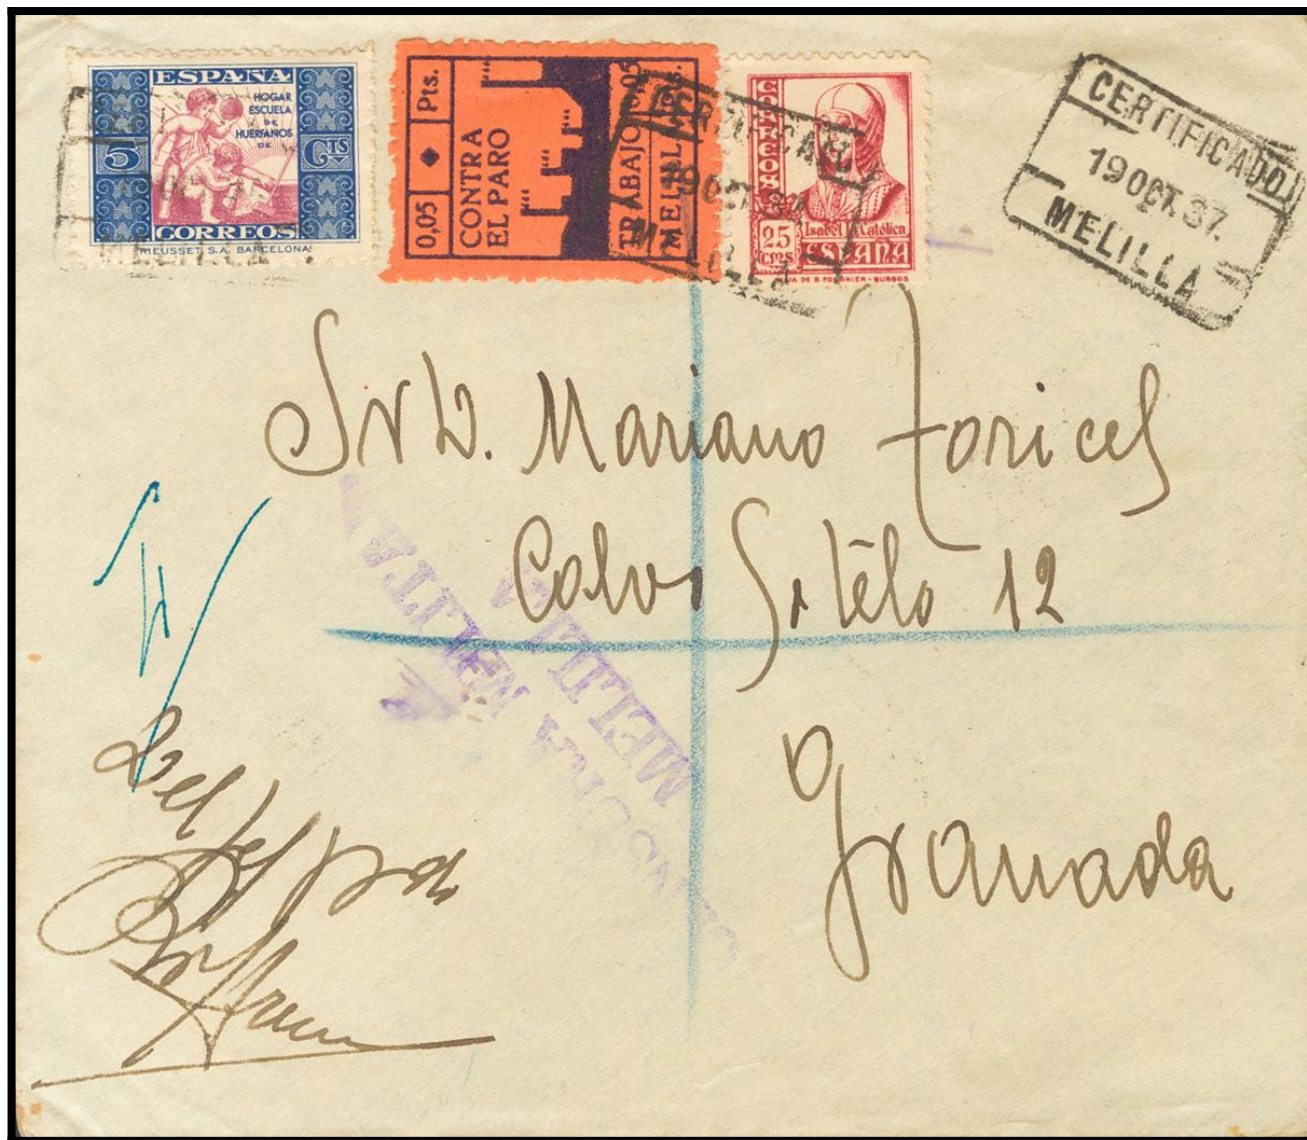 ESPAÑA
HOGAR
ESCUELA
DE
HUERFANOS
DE
5 CTS
CORREOS
RIEUSSET, S.A. BARCELONA
0,05 Pts.
CONTRA
EL PARO
TRABAJO 0,05
MELILLA Pts.
CORREOS
25
cms
Isabel Católica
ESPAÑA
DE B. FOURNIER - BURGOS
CERTIFICADO
19 OCT. 37
MELILLA
CERTIFICADO
19 OCT. 37.
MELILLA
Sr D. Mariano Torices
Calvo Sotélo 12
Granada
CENSURA MILITAR
MELILLA